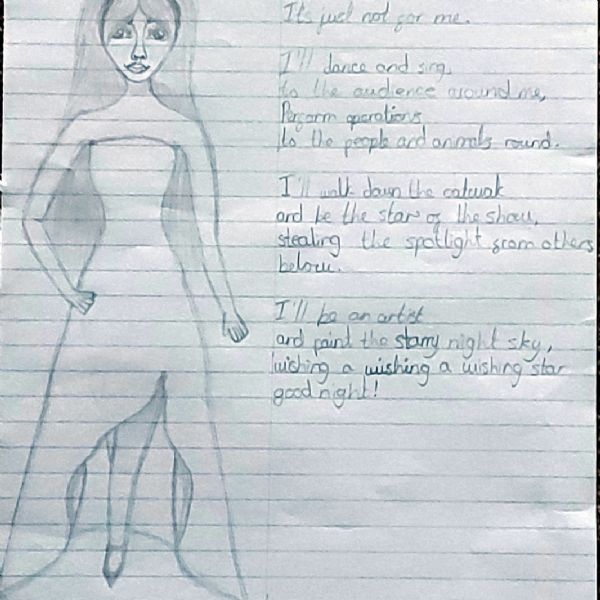 It's just not for me.
I'll dance and sing,
to the audience around me,
Perform operations
to the people and animals round.
I'll walk down the catwak
and be the star of the show,
stealing the spotlight from others
below.
I'll be an artist
and paint the starry night sky,
wishing a wishing a wishing star
goodnight!